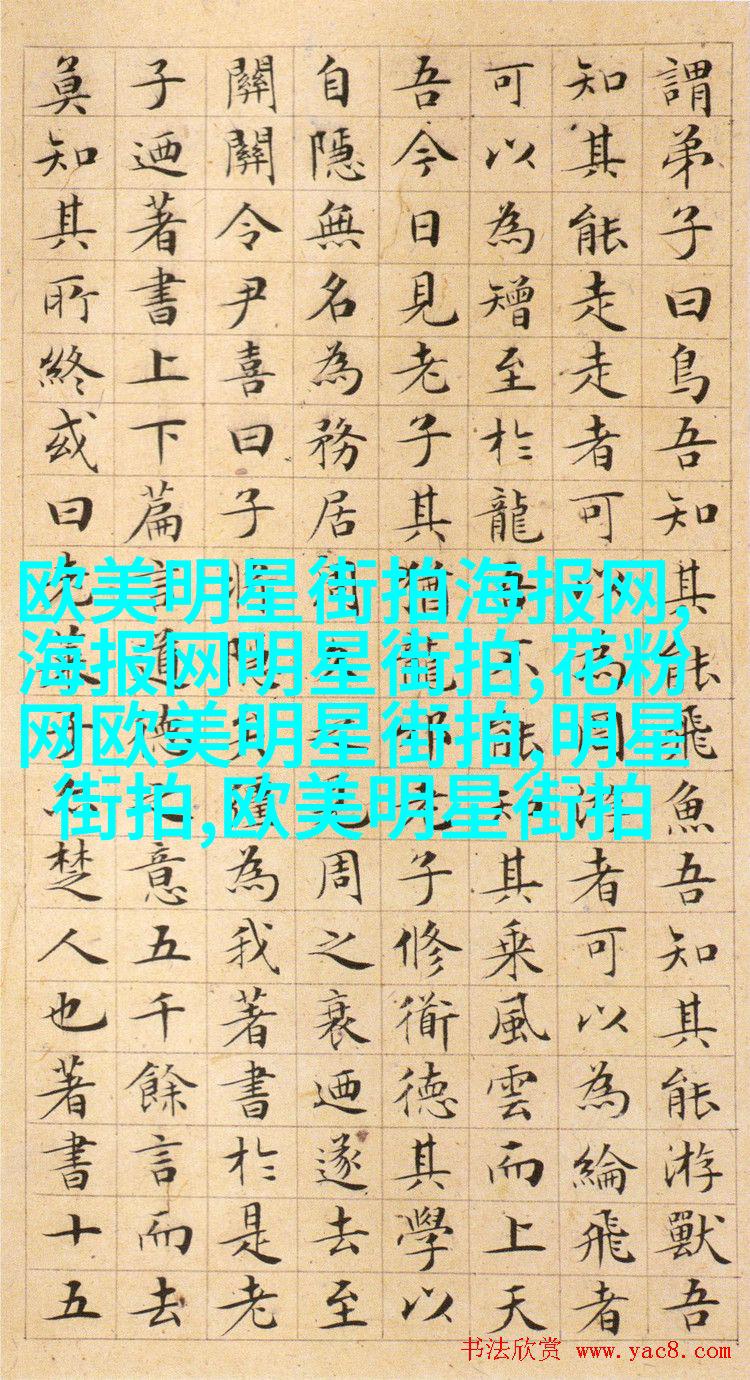 謂弟子曰鳥吾知其能飛魚吾知其能游獸吾
知其能走走者可以為罔游者可以為綸飛者
可以為矰至於龍吾不能知其乘風雲而上天
吾今日見老子其猶龍邪老子修衟德其學以
自隱無名為務居周久之見周之衰迺遂去至
關關令尹喜曰子將隱矣彊為我著書於是老
子迺著書上下篇言道德之意五千餘言而去
莫知其所終或曰老萊子亦楚人也著書十五
欧美明星街拍海报网,
海报网明星街拍,花粉
网欧美明星街拍,明星
街拍,欧美明星街拍
书法欣赏 www.yac8.com